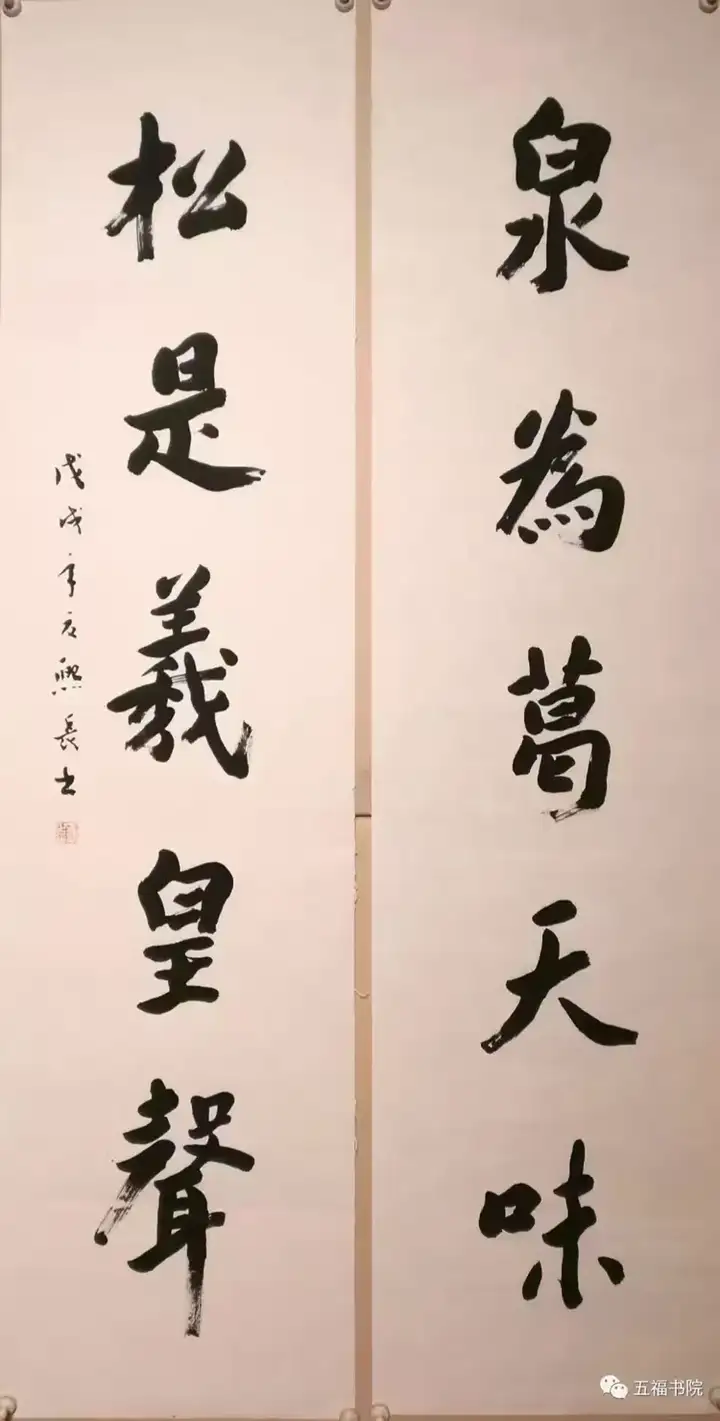 泉為葛天味
松是羲皇聲
戊戌年夏熙長書
五福书院